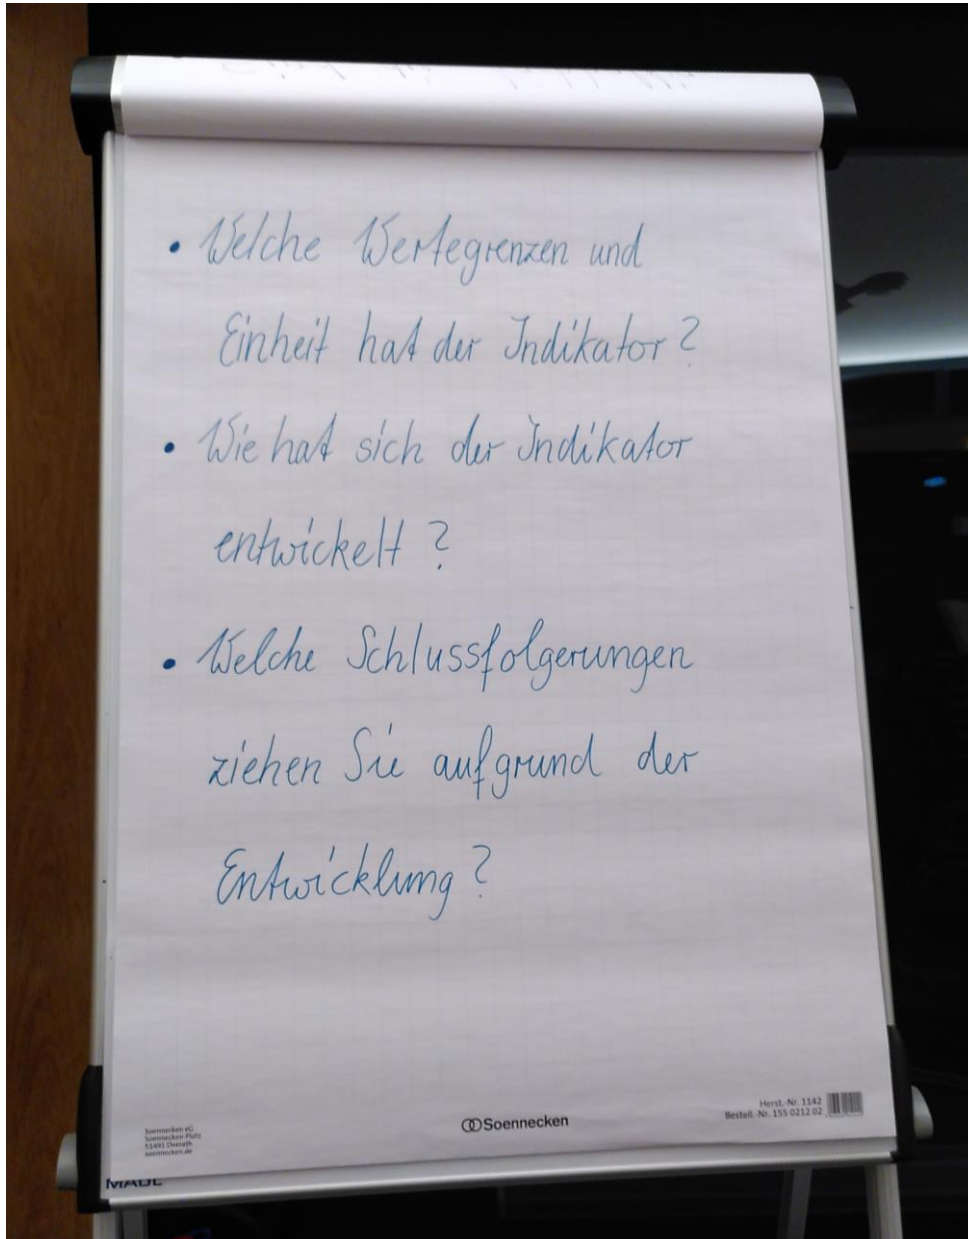 • Welche Wertegrenzen und
Einheit hat der Indikator?
• Wie hat sich der Indikator
entwickelt?
• Welche Schlussfolgerungen
ziehen Sie aufgrund der
Entwicklung?
Soennecken eG
Soennecken-Platz
51491 Overath
soennecken.de
Soennecken
Herst.-Nr. 1142
Bestell.-Nr. 155 0212 02
MAUL